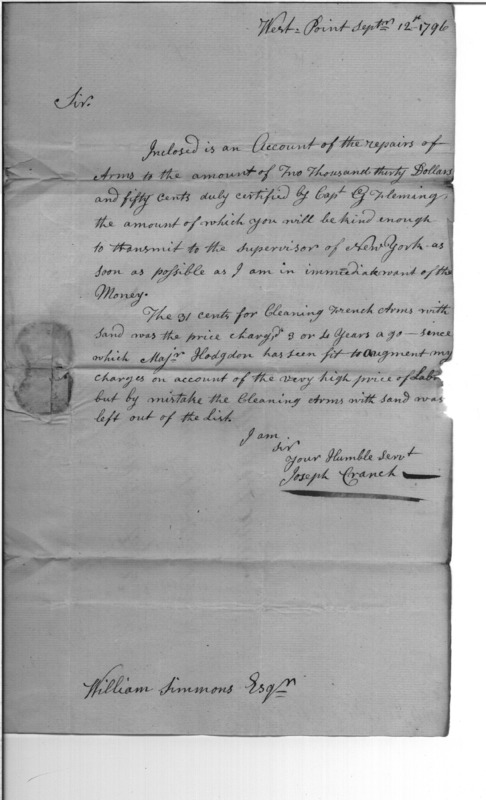 West=Point Septm 12th 1796
Sir.
Inclosed is an Account of the repairs of
Arms to the amount of Two Thousand thirty Dollars
and fifty cents duly certified by Capt G Fleming,
the amount of which you will be kind enough
to transmit to the supervisor of New York as
soon as possible as I am in immediate want of the
Money.
The 31 cents for Cleaning French Arms with
sand was the price charg,d 3 or 4 Years ago — sence
which Majr Hodgdon has seen fit to augment my
charges on account of the very high price of Labr
but by mistake the Cleaning Arms with sand was
left out of the list.
I am
Sir
Your Humble Servt
Joseph Cranch
William Simmons Esqr